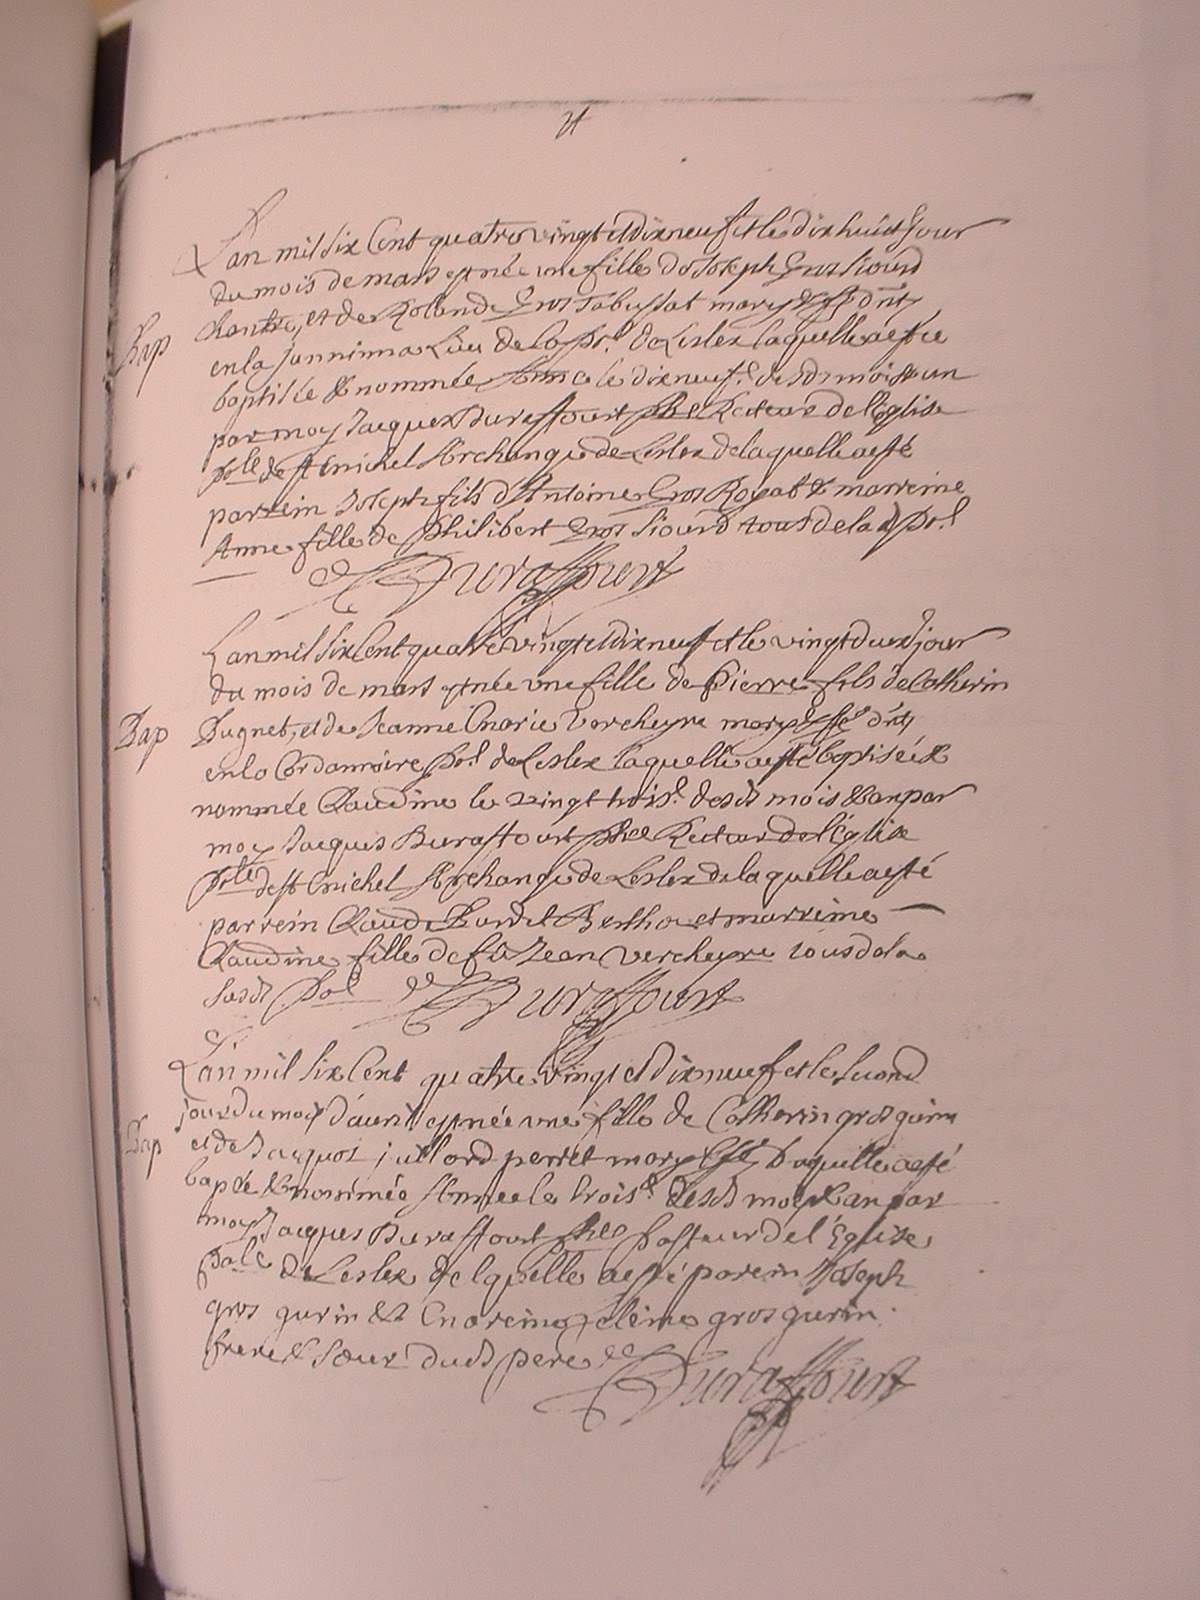 L'an mil six Cent quatre vingt et dix neuf et le dix huict Jour
du mois de mars est née une fille de Joseph Gros Siourd
Chantre, et de Rolande Gros Tabussat maryés
Bap
en la Janninna Lieu de la de Leslex laquelle a esté
baptisée & nommée Anne le dix neuf.e desds mois & an
par moy Jacques Duraffourt pbre Recteur de l'Eglise
de st michel Archange de Leslex de laquelle a esté
parrein Joseph fils d'Antoine Gros Royat & marreine
Anne fille de Philibert Gros Siourd tous de lad
Duraffourt
L'an mil six Cent quatre vingt et dix neuf et le vingt deux jour
du mois de mars est née une fille de Pierre fils de Catherin
Bap
Pugnet, et de Jeanne Marie Vercheyre maryés
en la Cordonnaire de Leslex laquelle a esté baptisée &
nommée Claudine le vingt trois.e desds mois & an par
moy Jacques Duraffourt pbre Recteur de l'Eglise
de st michel Archange de Leslex de laquelle a esté
parrein Claude Berthe et marreine
Claudine fille de fû Jean Vercheyre tous de la
susd
Duraffourt
L'an mil six Cent quatre vingt et dix neuf et le second
jour du moys d'avril est née une fille de Catherin gros gurin
Bap
et de Jacquot maryés laquelle a esté
bapée & nommée Anne le trois.e desds moys & an par
moy Jacques Duraffourt pbre pasteur de l'Eglise
de Leslex de laquelle a esté parein Joseph
gros gurin & Mareine gros gurin.
frere & soeur dud pere
Duraffourt